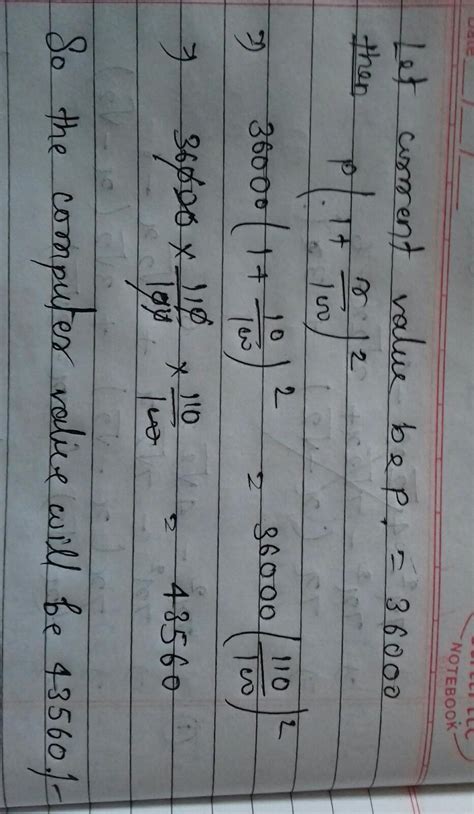 NOTEBOOK
Let current value be P, = 36000
then P(1+r/100)²
⇒ 36000(1+10/100)² = 36000(110/100)²
⇒ 36000 × 110/100 × 110/100 = 43560
So the computer value will be 43560/-